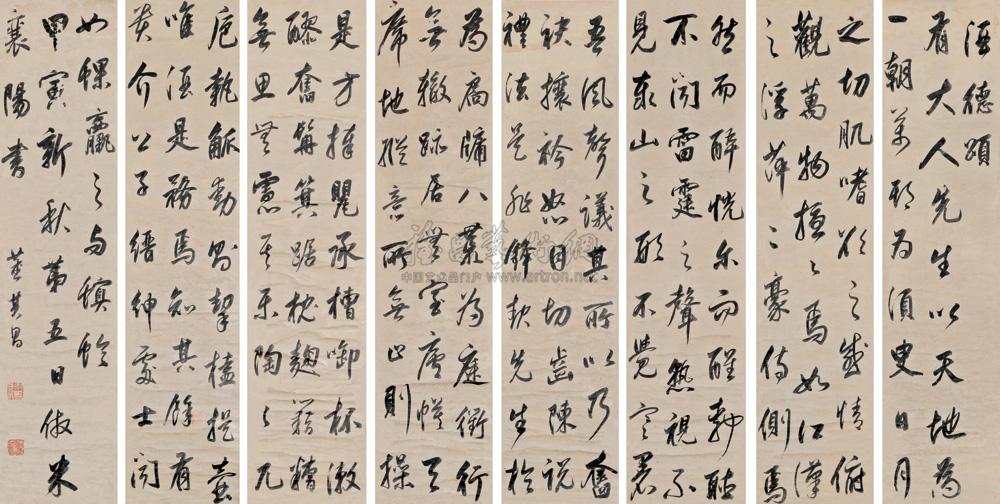 酒德頌
有大人先生以天地為
一朝萬期為須臾日月
之切肌嗜欲之感情俯
觀萬物擾〻焉如江漢
之浮萍二豪侍側焉
然而醉恍尔而醒靜聽
不聞雷霆之聲熟視不
見泰山之形不覺寒暑
吾風聲議其所以乃奮
袂攘衿怒目切齒陳說
禮法是非鋒起先生於
為扃牖八荒為庭衢行
無轍跡居無室廬幕天
席地縱意所如止則操
是方捧甖承槽銜杯漱
醪奮髯箕踞枕麴藉糟
無思無慮其樂陶〻兀
卮執觚動則挈榼提壺
唯酒是務焉知其餘有
貴介公子縉紳處士聞
如蜾蠃之與螟蛉
甲寅新秋第五日倣米
襄陽書 董其昌
中国艺术品门户 www.artron.net